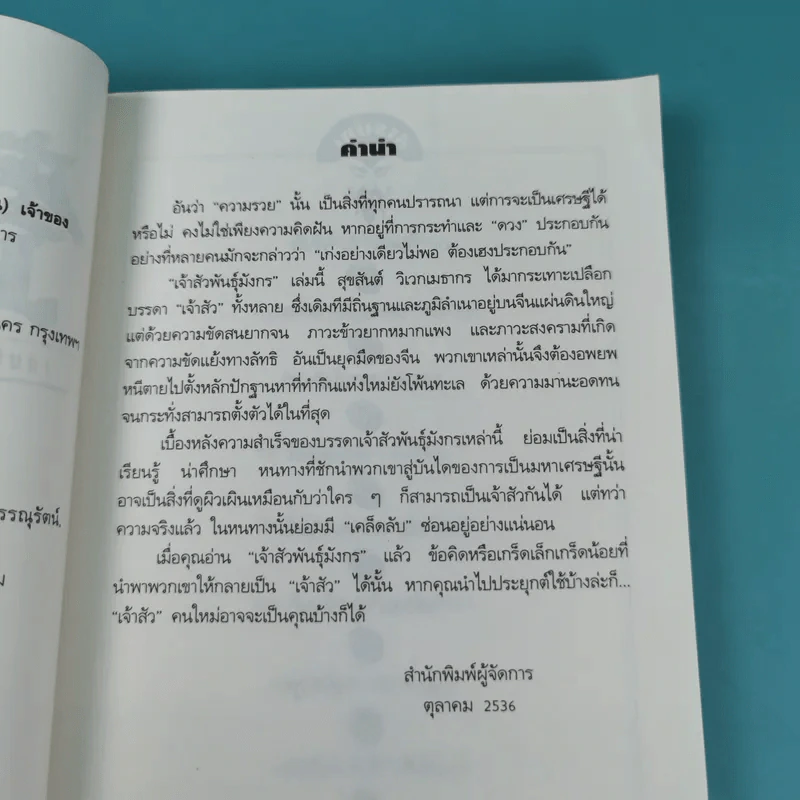 เจ้าของ
การ
กรุงเทพฯ
คำนำ
อันว่า “ความรวย” นั้น เป็นสิ่งที่ทุกคนปรารถนา แต่การจะเป็นเศรษฐีได้
หรือไม่ คงไม่ใช่เพียงความคิดฝัน หากอยู่ที่การกระทำและ “ดวง” ประกอบกัน
อย่างที่หลายคนมักจะกล่าวว่า “เก่งอย่างเดียวไม่พอ ต้องเฮงประกอบกัน”
“เจ้าสัวพันธุ์มังกร” เล่มนี้ สุขสันต์ วิเวกเมธากร ได้มากระเทาะเปลือก
บรรดา “เจ้าสัว” ทั้งหลาย ซึ่งเดิมทีมีถิ่นฐานและภูมิลำเนาอยู่บนจีนแผ่นดินใหญ่
แต่ด้วยความขัดสนยากจน ภาวะข้าวยากหมากแพง และภาวะสงครามที่เกิด
จากความขัดแย้งทางลัทธิ อันเป็นยุคมืดของจีน พวกเขาเหล่านั้นจึงต้องอพยพ
หนีตายไปตั้งหลักปักฐานหาที่ทำกินแห่งใหม่ยังโพ้นทะเล ด้วยความมานะอดทน
จนกระทั่งสามารถตั้งตัวได้ในที่สุด
เบื้องหลังความสำเร็จของบรรดาเจ้าสัวพันธุ์มังกรเหล่านี้ ย่อมเป็นสิ่งที่น่า
เรียนรู้ น่าศึกษา หนทางที่ชักนำพวกเขาสู่บันไดของการเป็นมหาเศรษฐีนั้น
อาจเป็นสิ่งที่ดูผิวเผินเหมือนกับว่าใคร ๆ ก็สามารถเป็นเจ้าสัวกันได้ แต่ทว่า
ความจริงแล้ว ในหนทางนั้นย่อมมี “เคล็ดลับ” ซ่อนอยู่อย่างแน่นอน
เมื่อคุณอ่าน “เจ้าสัวพันธุ์มังกร” แล้ว ข้อคิดหรือเกร็ดเล็กเกร็ดน้อยที่
นำพาพวกเขาให้กลายเป็น “เจ้าสัว” ได้นั้น หากคุณนำไปประยุกต์ใช้บ้างล่ะก็...
“เจ้าสัว” คนใหม่อาจจะเป็นคุณบ้างก็ได้
สำนักพิมพ์ผู้จัดการ
ตุลาคม 2536